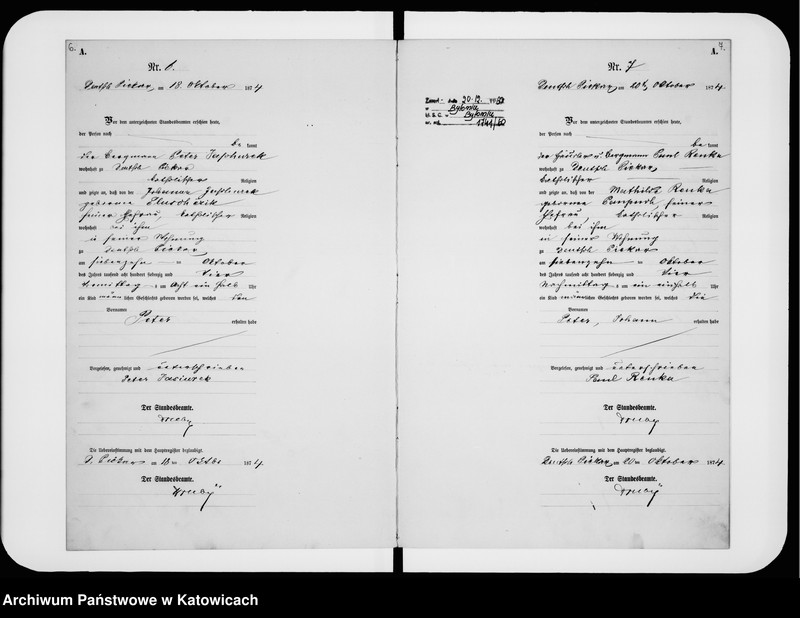 6.
A.
Nr. 6.
Deutsch Piekar, am 18. Oktober 1874
Vor dem unterzeichneten Standesbeamten erschien heute,
der Person nach
be kannt
der Bergmann Peter
wohnhaft zu Deutsch Piekar
katholischer Religion
und zeigte an, daß von der Johanna
geborene
seiner Ehefrau, katholischer Religion
wohnhaft bei ihm
in seiner Wohnung
zu Deutsch Piekar
am siebenzehn ten Oktober
des Jahres tausend acht hundert siebenzig und vier
mittag s um acht ein halb Uhr
ein Kind männlichen Geschlechts geboren worden sei, welches den
Vornamen
Peter erhalten habe
Vorgelesen, genehmigt und unterschrieben
Peter
Der Standesbeamte.
Die Uebereinstimmung mit dem Hauptregister beglaubigt.
D. Piekar am 18ten Oktbr 1874.
Der Standesbeamte.
7.
A.
Nr. 7
Deutsch Piekar, am 20ten Oktober 1874.
Zmarł - dnia 20.12.
w Bytomiu
U.S.C. Bytomiu
Vor dem unterzeichneten Standesbeamten erschien heute,
der Person nach
be kannt
der Häusler u. Bergmann Paul Renka
wohnhaft zu Deutsch Piekar,
katholischer Religion
und zeigte an, daß von der Mathilde Renka
geborene seiner
Ehefrau, katholischer Religion
wohnhaft bei ihm
in seiner Wohnung
zu Deutsch Piekar
am siebenzehn ten Oktober
des Jahres tausend acht hundert siebenzig und vier
Nachmittag s um ein einhalb Uhr
ein Kind männlichen Geschlechts geboren worden sei, welches die
Vornamen
Peter, Johann erhalten habe
Vorgelesen, genehmigt und unterschrieben
Paul Renka
Der Standesbeamte.
Die Uebereinstimmung mit dem Hauptregister beglaubigt.
Deutsch Piekar, am 20ten Oktober 1874.
Der Standesbeamte.
Archiwum Państwowe w Katowicach